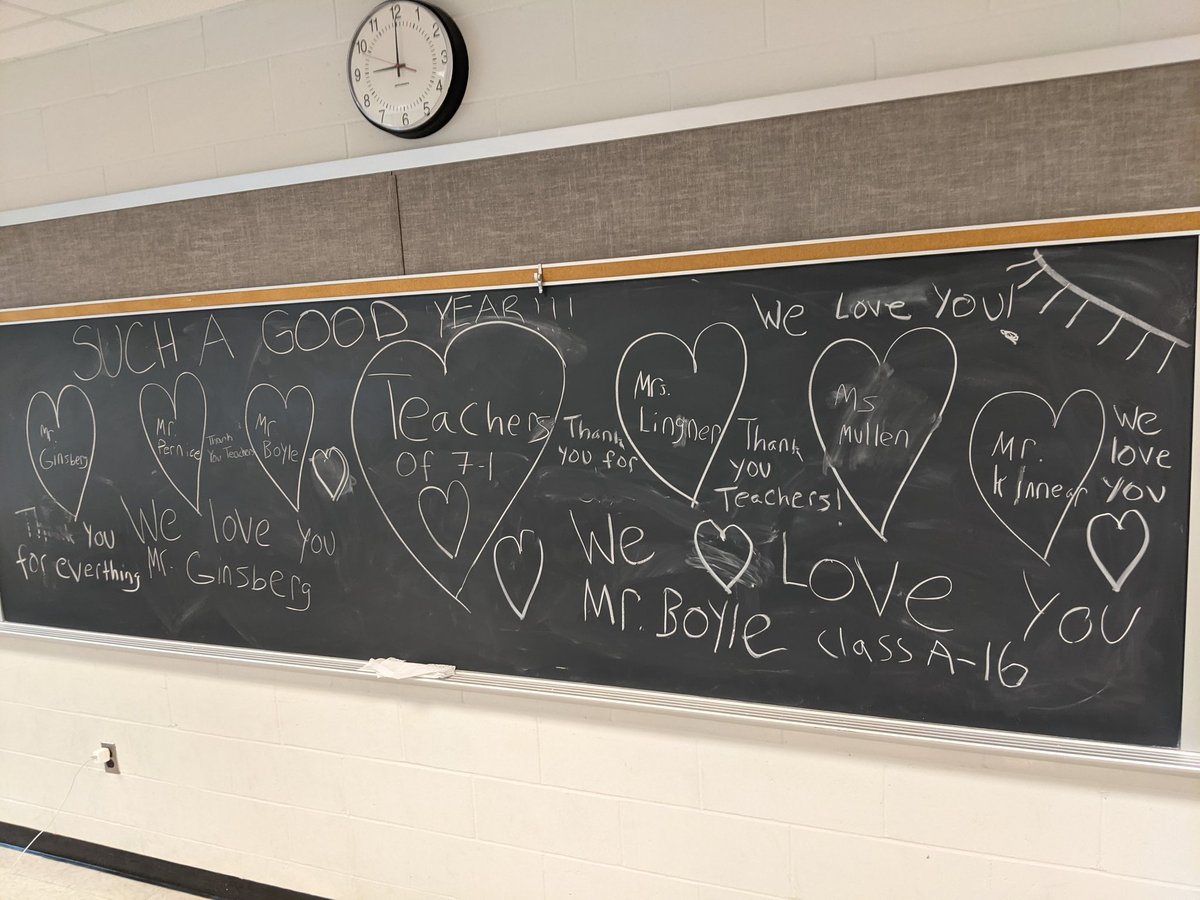 12
1
2
3
4
5
6
7
8
9
10
11
SUCH A GOOD YEAR!!!
We Love You!
Mr.
Ginsberg
Mr.
Pernice
Thank
You Teachers
Mr
BOYLE
Teachers
of 7-1
Thank
you for
Mrs.
Lingner
Thank
you
Teachers!
Ms
Mullen
Mr.
Kinnear
We
love
you
Thank you
for everthing
We love you
Mr. Ginsberg
We Love You
Mr. Boyle
Class A-16